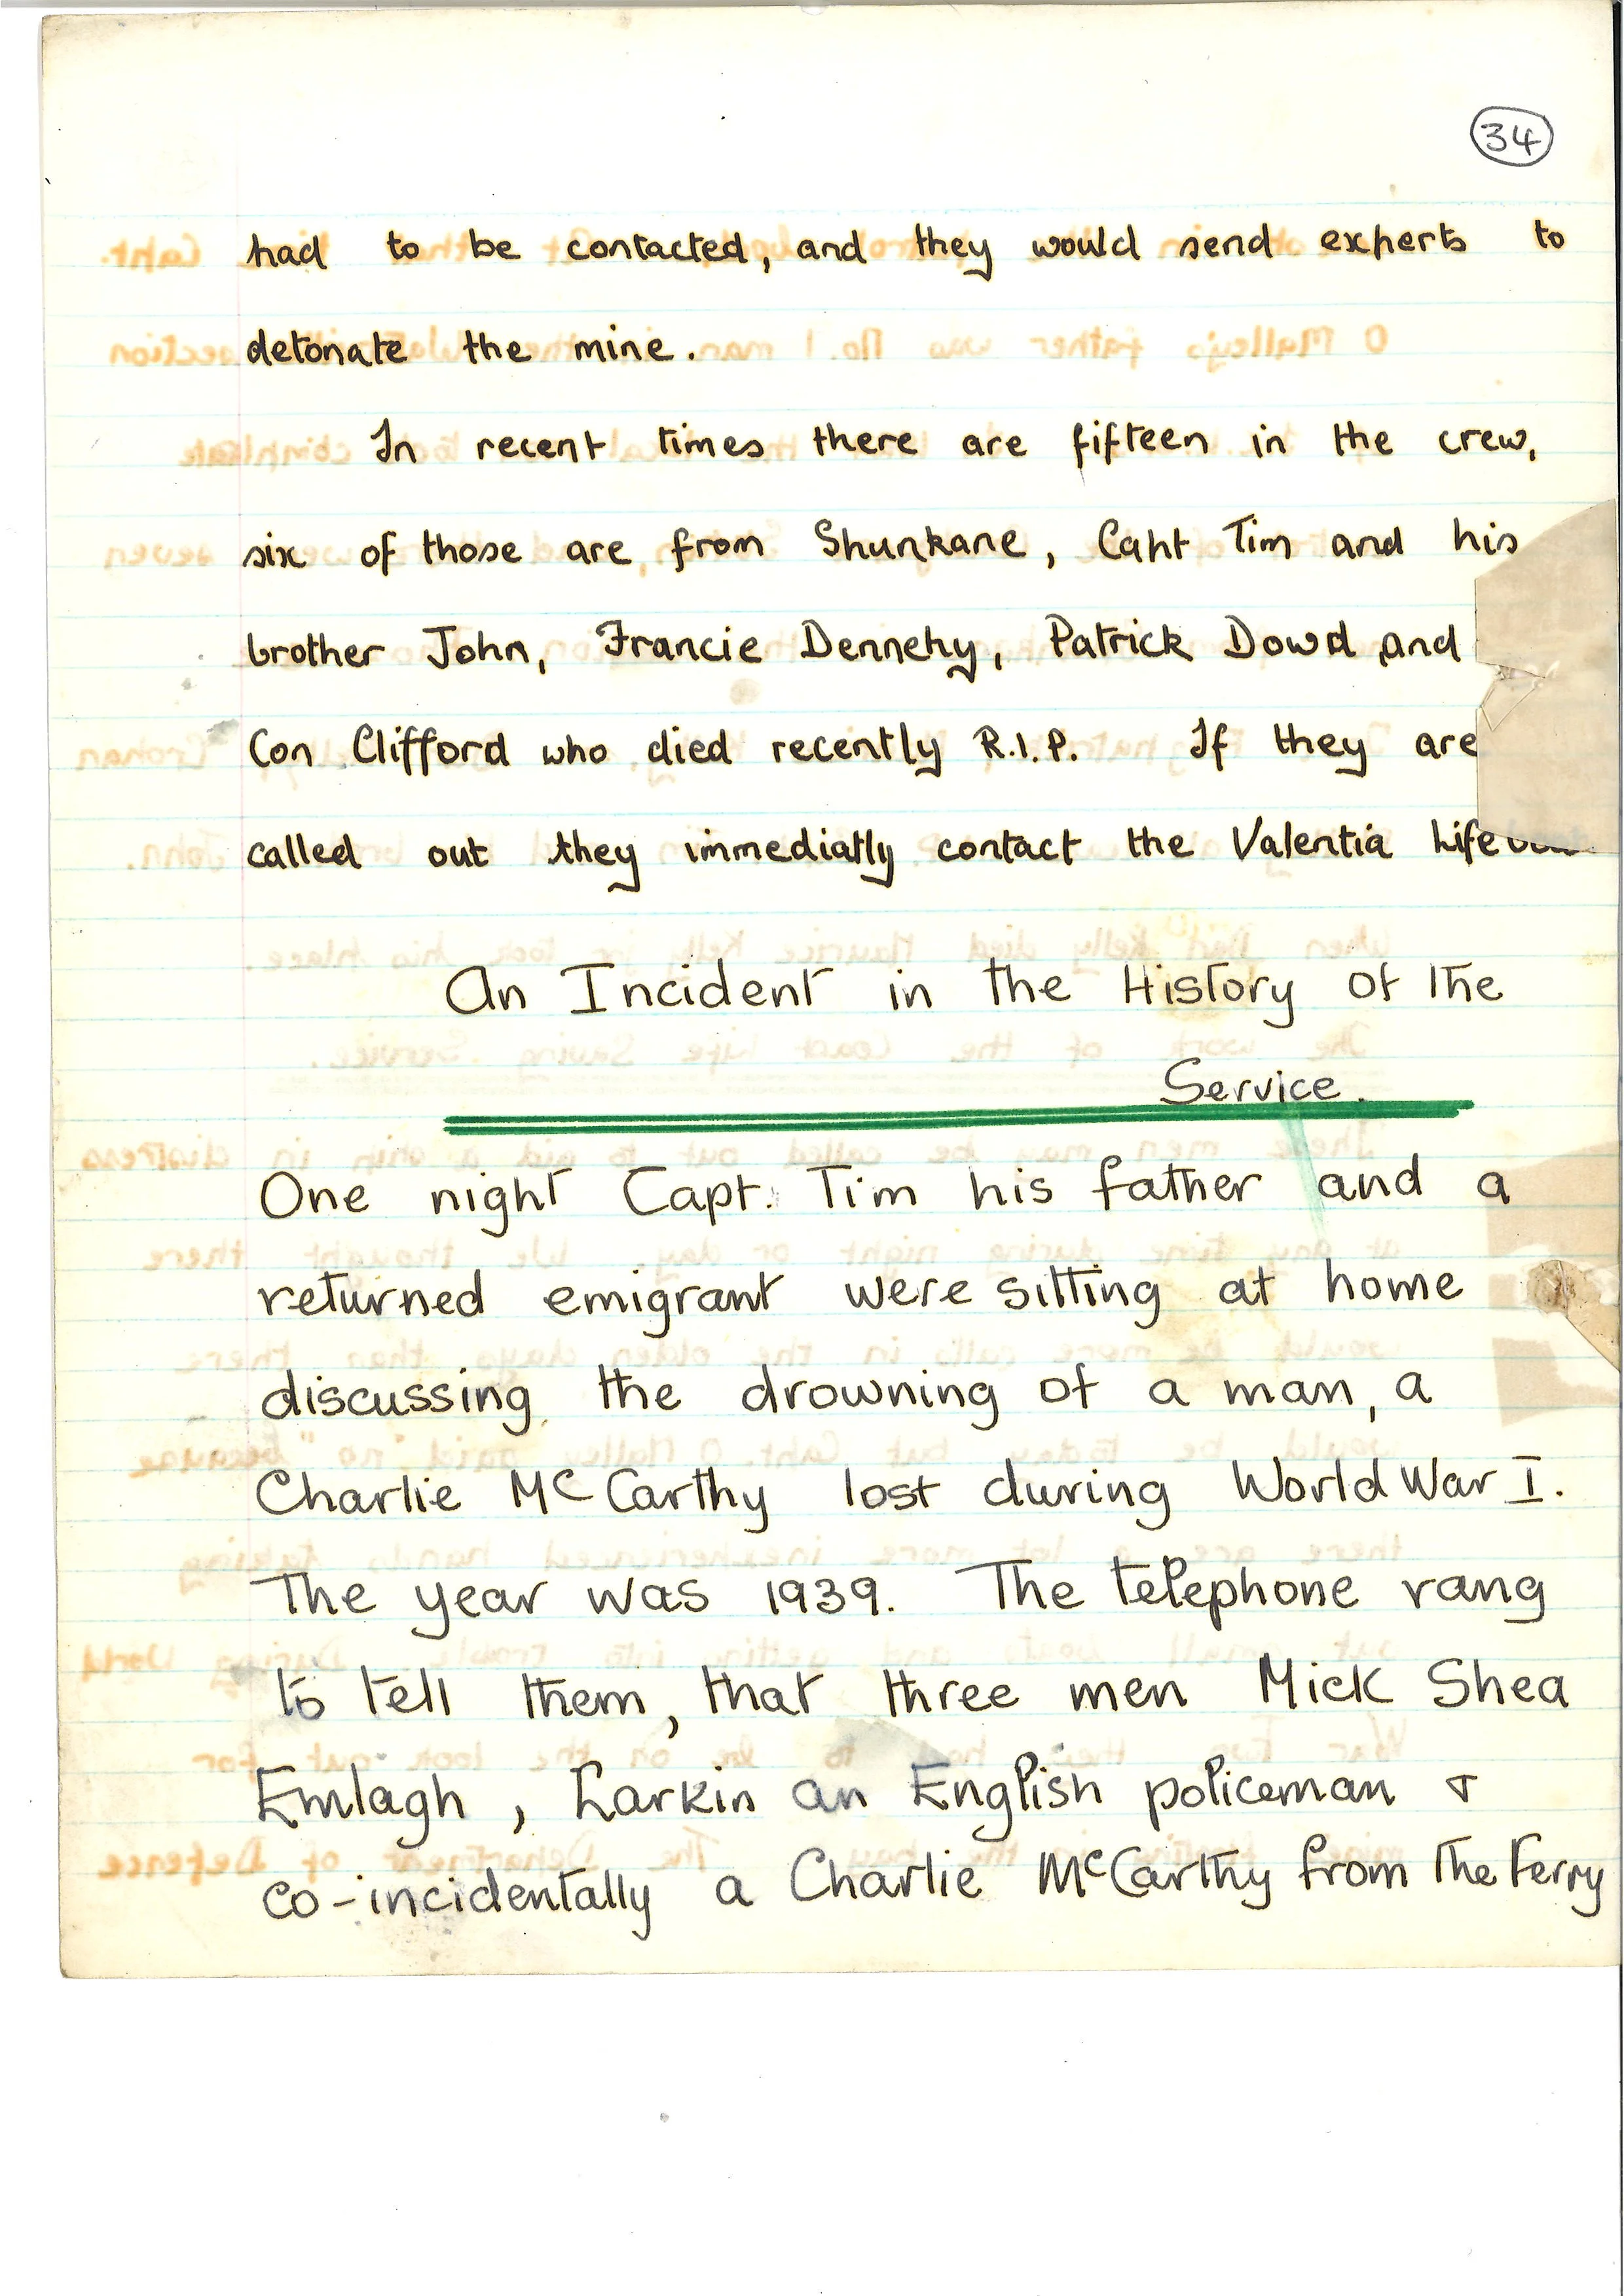 34
had to be contacted, and they would send experts to
detonate the mine.
In recent times there are fifteen in the crew,
six of those are from Shunkane, Capt Tim and his
brother John, Francie Dennehy, Patrick Dowd and
Con Clifford who died recently R.I.P. If they are
called out they immediatly contact the Valentia Lifeboat
An Incident in the History of the
Service.
One night Capt. Tim his father and a
returned emigrant were sitting at home
discussing the drowning of a man, a
Charlie McCarthy lost during World War I.
The year was 1939. The telephone rang
to tell them, that three men Mick Shea
Emlagh, Larkin an English policeman &
co-incidentally a Charlie McCarthy from The Ferry